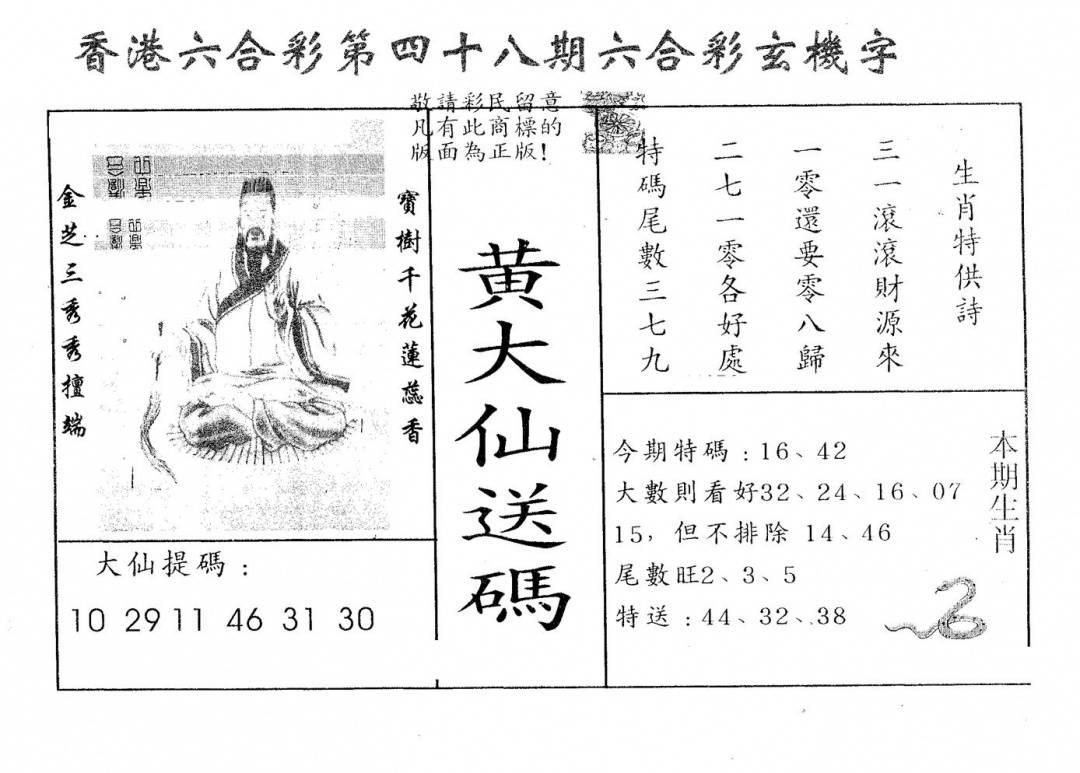 香港六合彩第四十八期六合彩玄機字
敬請彩民留意
凡有此商標的
版面為正版!
寶樹千花蓮蕊香
金芝三秀秀擅端
大仙提碼：
10 29 11 46 31 30
黄大仙送碼
生肖特供詩
三一滾滾財源來
一零還要零八歸
二七一零各好處
特碼尾數三七九
本期生肖
今期特碼：16、42
大數則看好32、24、16、07
15，但不排除 14、46
尾數旺2、3、5
特送：44、32、38